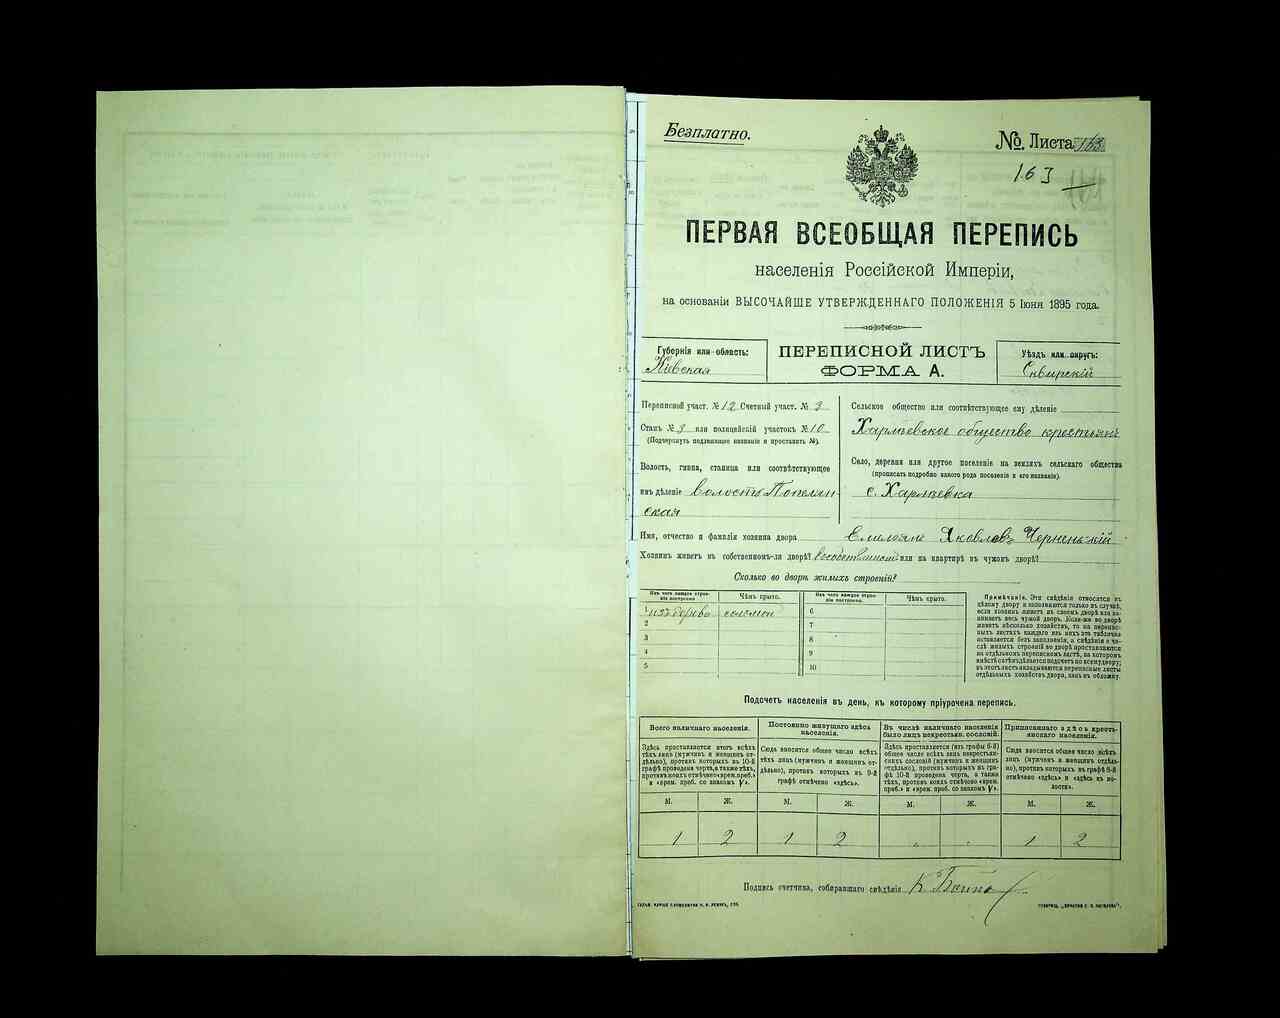 Безплатно.
№ Листа 163
163
ПЕРВАЯ ВСЕОБЩАЯ ПЕРЕПИСЬ
населенія Россійской Имперіи,
на основаніи ВЫСОЧАЙШЕ УТВЕРЖДЕННАГО ПОЛОЖЕНІЯ 5 Іюня 1895 года.
Губернія или область:
Кіевская
ПЕРЕПИСНОЙ ЛИСТЪ
ФОРМА А.
Уѣздъ или округъ:
Сквирскій
Переписной участ. № 12 Счетный участ. № 3
Станъ № 3 или полицейскій участокъ № 10
(Подчеркнуть подлежащее названіе и проставить №).
Волость, гмина, станица или соотвѣтствующее
имъ дѣленіе волость Попелян
ская
Сельское общество или соотвѣтствующее ему дѣленіе
Харлѣевское общество крестьянъ
Село, деревня или другое поселеніе на земляхъ сельскаго общества
(прописать подробно какого рода поселеніе и его названіе).
с. Харлѣевка
Имя, отчество и фамилія хозяина двора Емельянъ Яковлевъ Черненькій
Хозяинъ живетъ въ собственномъ-ли дворѣ? или на квартирѣ въ чужомъ дворѣ?
Сколько во дворѣ жилыхъ строеній?
Изъ чего каждое строеніе построено Чѣмъ крыто. Изъ чего каждое строеніе построено. Чѣмъ крыто.
1 изъ дерево соломой 6
2 7
3 8
4 9
5 10
Примѣчаніе. Эти свѣдѣнія относятся къ
цѣлому двору и заполняются только въ случаѣ,
если хозяинъ живетъ въ своемъ дворѣ или за-
нимаетъ весь чужой дворъ. Если-же во дворѣ
живетъ нѣсколько хозяйствъ, то на перепис-
ныхъ листахъ каждаго изъ нихъ эта табличка
оставляется безъ заполненія, а свѣдѣнія о чи-
слѣ жилыхъ строеній во дворѣ проставляются
на отдѣльномъ переписномъ листѣ, на которомъ
вмѣстѣ съ тѣмъ дѣлается подсчетъ по всему двору;
въ этотъ листъ вкладываются переписные листы
отдѣльныхъ хозяйствъ двора, какъ въ обложку.
Подсчетъ населенія въ день, къ которому пріурочена перепись.
Всего наличнаго населенія.
Здѣсь проставляется итогъ всѣхъ
тѣхъ лицъ (мужчинъ и женщинъ от-
дѣльно), противъ которыхъ въ 10-й
графѣ проведена черта, а также тѣхъ,
противъ коихъ отмѣчено «врем. преб.»
и «врем. преб. со знакомъ V».
Постоянно живущаго здѣсь
населенія.
Сюда вносится общее число всѣхъ
тѣхъ лицъ (мужчинъ и женщинъ от-
дѣльно), противъ которыхъ въ 9-й
графѣ отмѣчено «здѣсь».
Въ числѣ наличнаго населенія
было лицъ некрестьян. сословій.
Здѣсь проставляется (изъ графы 6-й)
общее число всѣхъ лицъ некрестьян-
скихъ сословій (мужчинъ и женщинъ
отдѣльно), противъ которыхъ въ гра-
фѣ 10-й проведена черта, а также
тѣхъ, противъ коихъ отмѣчено «врем.
преб.» и «врем. преб. со знакомъ V».
Приписаннаго здѣсь кресть-
янскаго населенія.
Сюда вносится общее число всѣхъ
лицъ (мужчинъ и женщинъ отдѣль-
но), противъ которыхъ въ графѣ 8-й
отмѣчено «здѣсь» и «здѣсь въ во-
лости».
М. Ж. М. Ж. М. Ж. М. Ж.
1 2 1 2 1 2
Подпись счетчика, собиравшаго свѣдѣнія К.